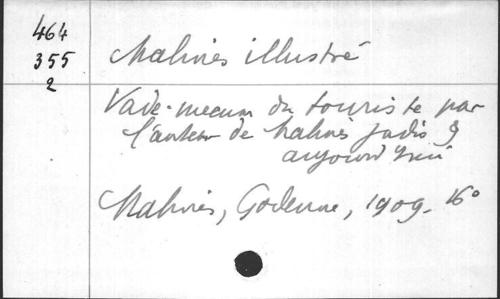 464
355
2
Malines illustré
Vade-mecum du touriste par
l'auteur de Malines jadis &
aujourd'hui
Malines, Godenne, 1909. 16°